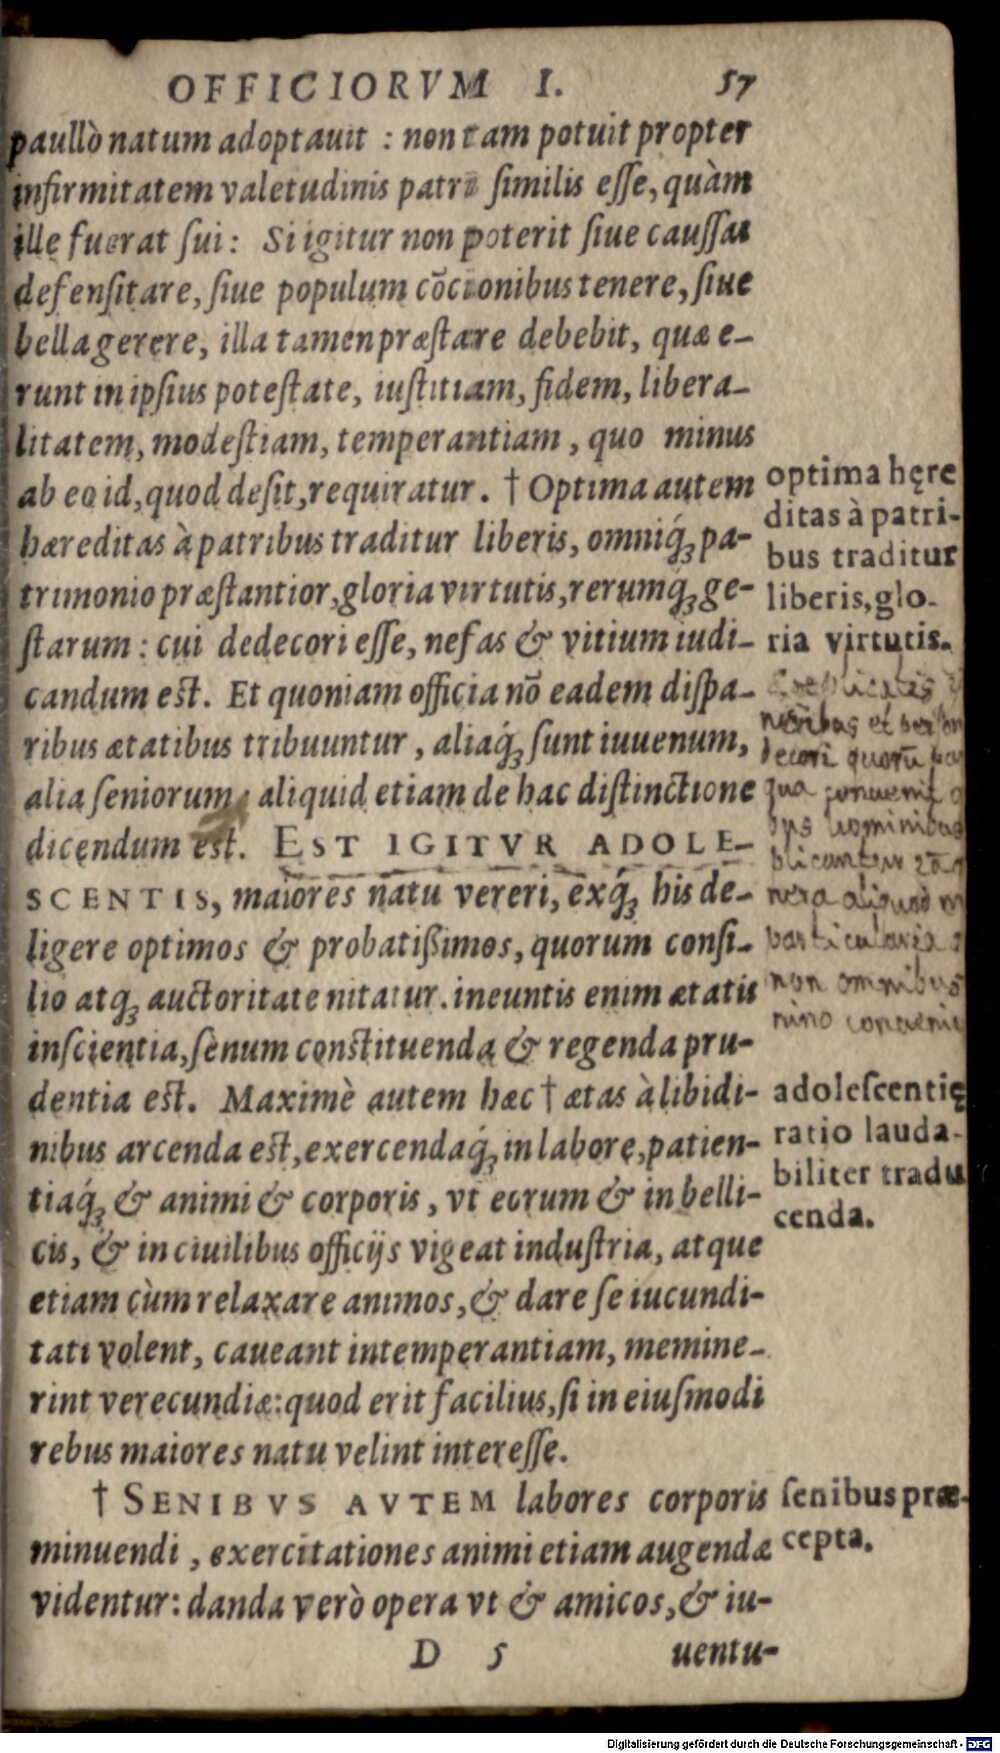 OFFICIORVM I. 57
paullò natum adoptauit : non tam potuit propter
infirmitatem valetudinis patri similis esse, quàm
ille fuerat sui: Si igitur non poterit siue caussas
defensitare, siue populum cōcionibus tenere, siue
bella gerere, illa tamen præstare debebit, quæ e-
runt in ipsius potestate, iustitiam, fidem, libera-
litatem, modestiam, temperantiam, quo minus
ab eo id, quod desit, requiratur. † Optima autem
hæreditas à patribus traditur liberis, omniq́ꝫ pa-
trimonio præstantior, gloria virtutis, rerumq́ꝫ ge-
starum: cui dedecori esse, nefas & vitium iudi-
candum est. Et quoniam officia nō eadem dispa-
ribus ætatibus tribuuntur, aliaq́ꝫ sunt iuuenum,
alia seniorum, aliquid etiam de hac distinctione
dicendum est. EST IGITVR ADOLE-
SCENTIS, maiores natu vereri, exq́ꝫ his de-
ligere optimos & probatißimos, quorum consi-
lio atqꝫ auctoritate nitatur. ineuntis enim ætatis
inscientia, senum constituenda & regenda pru-
dentia est. Maximè autem hæc † ætas à libidi-
nibus arcenda est, exercendaq́ꝫ in labore, patien-
tiaq́ꝫ & animi & corporis, vt eorum & in belli-
cis, & in ciuilibus officijs vigeat industria, atque
etiam cùm relaxare animos, & dare se iucundi-
tati volent, caueant intemperantiam, memine-
rint verecundiæ: quod erit facilius, si in eiusmodi
rebus maiores natu velint interesse.
† SENIBVS AVTEM labores corporis
minuendi, exercitationes animi etiam augendæ
videntur: danda verò opera vt & amicos, & iu-
D 5 uentu-
optima hęre
ditas à patri-
bus traditur
liberis, glo-
ria virtutis.
neribus et
decori quorū
qua
particularia
non omnibus
adolescentię
ratio lauda-
biliter tradu
cenda.
senibus præ-
cepta.
Digitalisierung gefördert durch die Deutsche Forschungsgemeinschaft - DFG